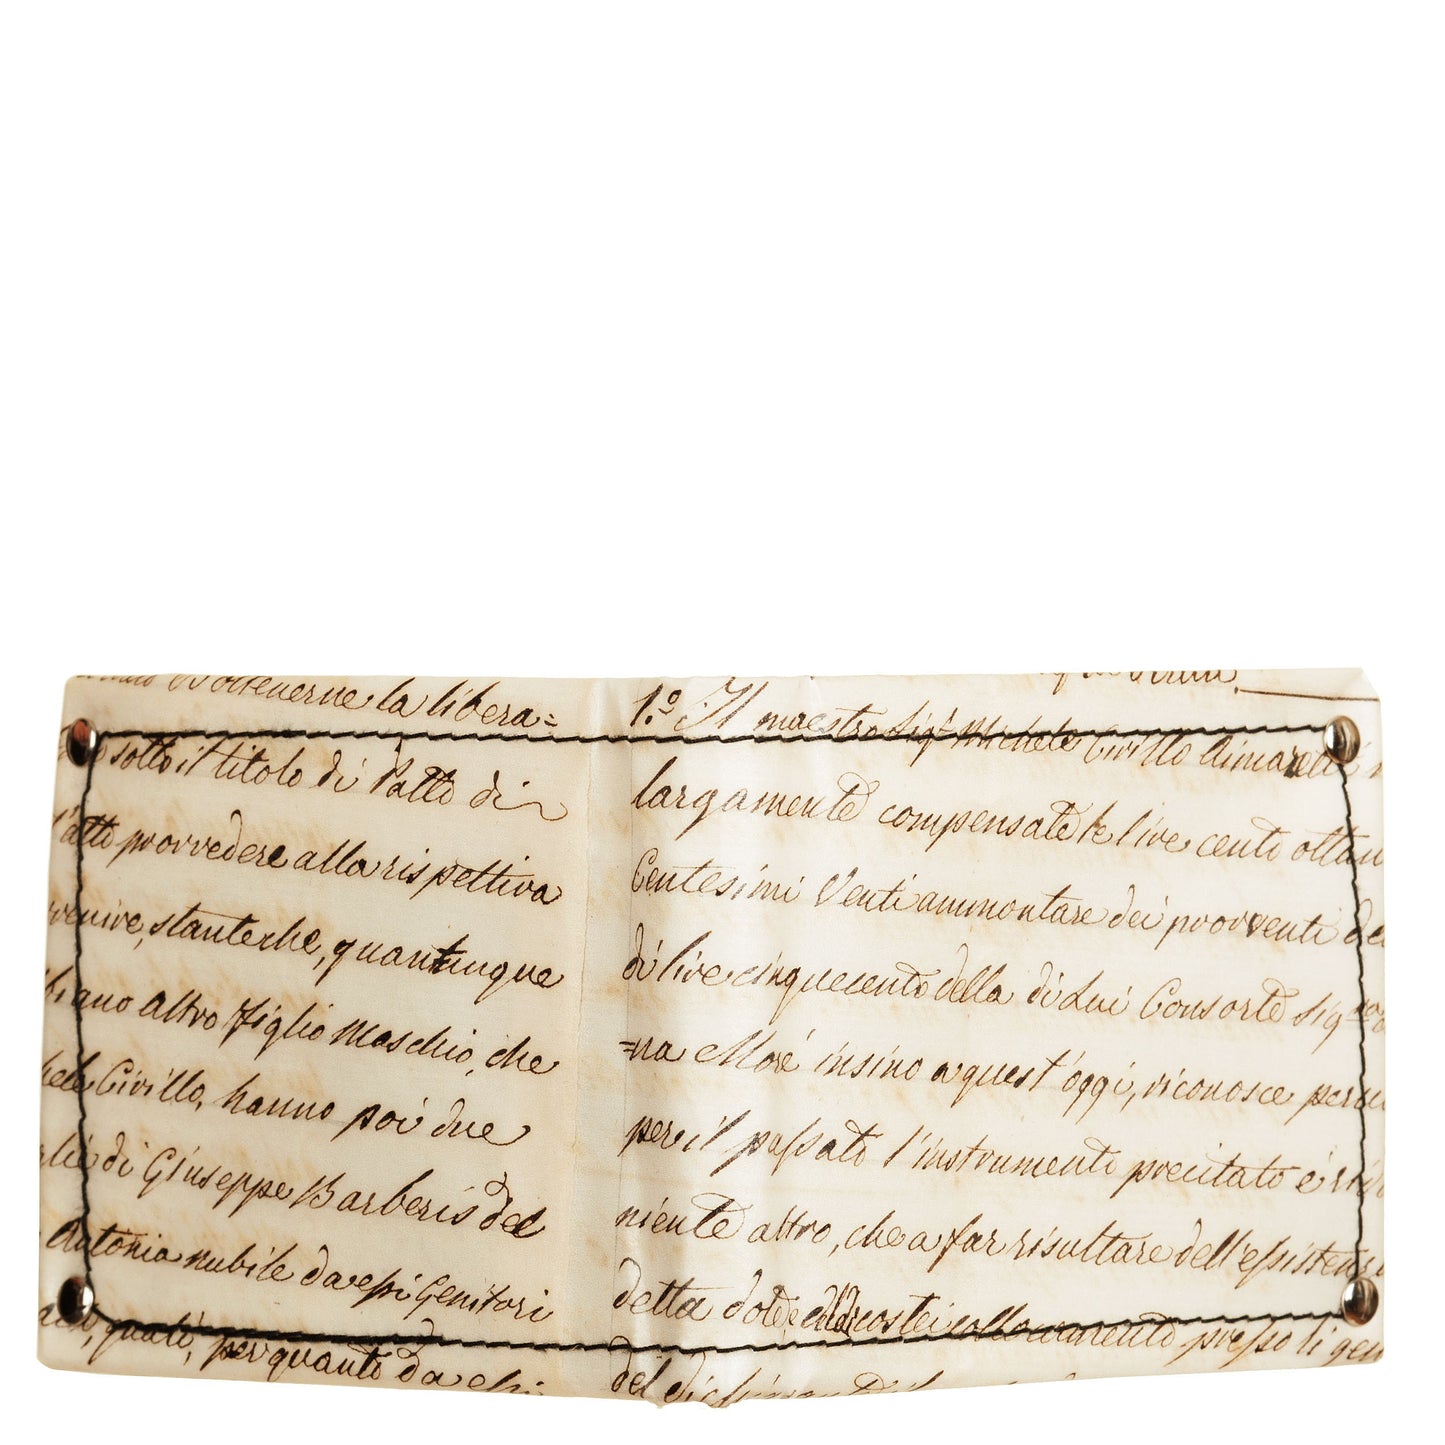 ottenerne la libera=
sotto il titolo di Patto di
l'atto provvedere alla rispettiva
venire, stanteche, quantunque
altro figlio maschio, che
Civillo, hanno poi due
di Giuseppe Barberis del
Antonia nubile da essi Genitori
quali, per quanto da essi
1.º Il maestro Sig.r Michele Civillo Aimaretti
largamente compensate le lire cento ottan
Centesimi Venti ammontare dei provventi
di lire cinquecento della di Lui Consorte Sig
=na Moré insino a quest'oggi, riconosce per
per il passato l'instrumento precitato é
niente altro, che a far risultare dell'esistenz
detta dote, e costei collocamento presso li gen
del